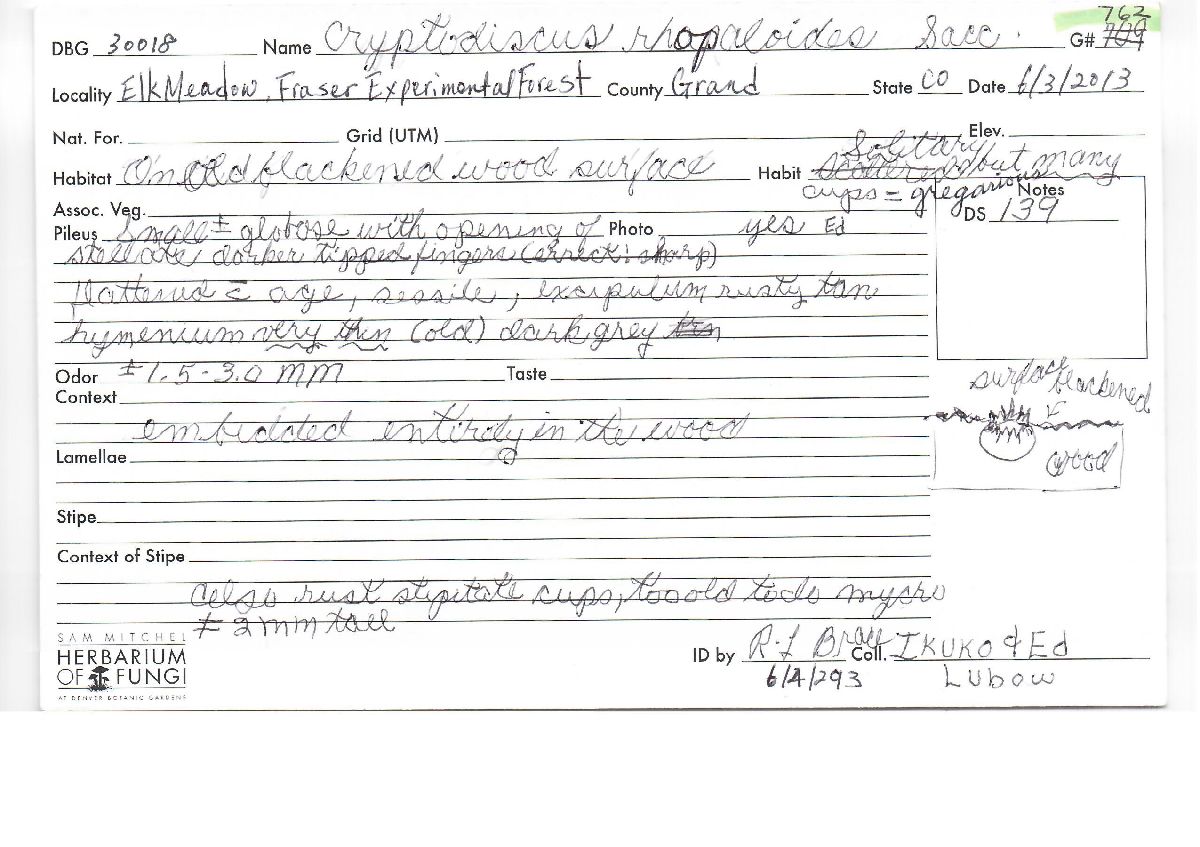 762
DBG 30018 Name Cryptodiscus rhopaloides Sacc. G# 709
Locality Elk Meadow, Fraser Experimental Forest County Grand State CO Date 6/3/2013
Nat. For. Grid (UTM) Elev.
Solitary
Habitat On old blackened wood surface Habit scattered but many
cups = gregarious Notes
Assoc. Veg. DS 139
Pileus Small ± globose with opening of Photo yes Ed
stellate darker tipped fingers (erect: sharp)
flattened c age, sessile, excipulum rusty tan
hymenium very thin (old) dark grey
Odor ± 1.5-3.0 mm Taste
surface blackened
Context
embedded entirely in the wood
wood
Lamellae
Stipe
Context of Stipe
also rust stipitate cups, too old to do mycro
± 2mm tall
SAM MITCHEL
HERBARIUM
OF FUNGI
AT DENVER BOTANIC GARDENS
ID by R-L Brace Coll. Ikuko & Ed
6/4/293 Lubow